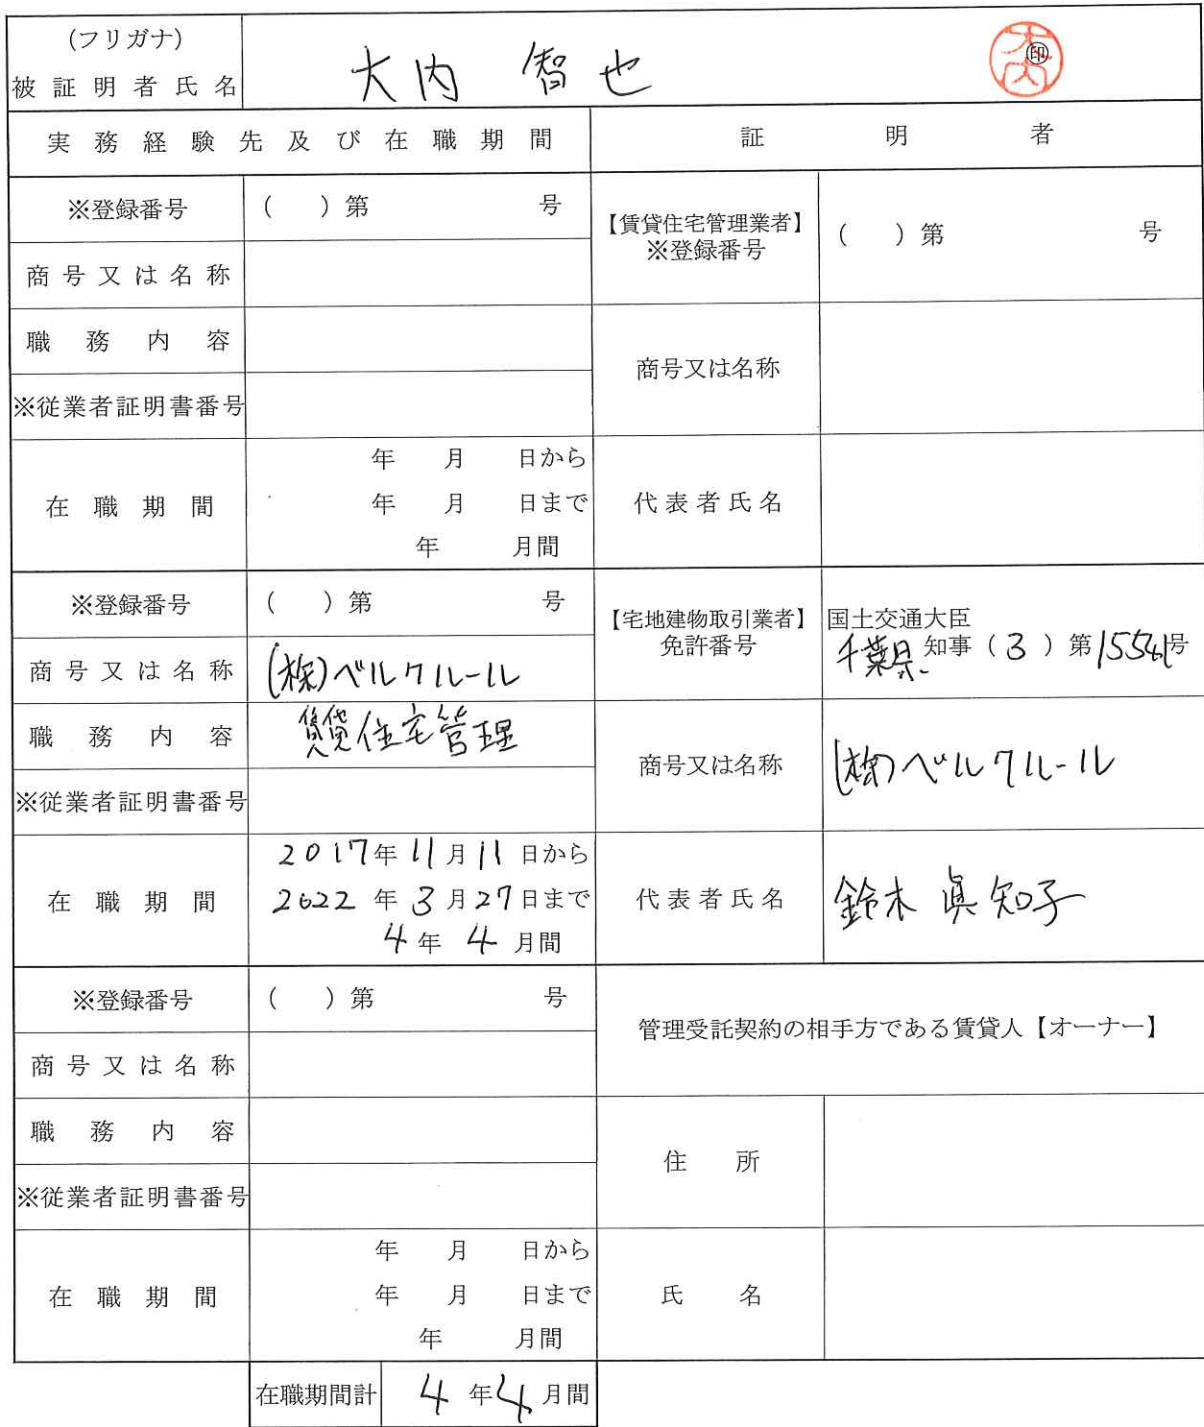 (フリガナ)
被証明者氏名 大内 智也 大内 ㊞
実務経験先及び在職期間 証明者
※登録番号 ( )第 号
【賃貸住宅管理業者】
※登録番号 ( )第 号
商号又は名称
職務内容
商号又は名称
※従業者証明書番号
在職期間
年 月 日から
年 月 日まで
年 月間
代表者氏名
※登録番号 ( )第 号
【宅地建物取引業者】
免許番号
国土交通大臣
千葉県 知事(3)第 号
商号又は名称 (株)ベルクルール
職務内容 賃貸住宅管理
商号又は名称 (株)ベルクルール
※従業者証明書番号
在職期間
2017年11月11日から
2022年3月27日まで
4年4月間
代表者氏名 鈴木 眞知子
※登録番号 ( )第 号
管理受託契約の相手方である賃貸人【オーナー】
商号又は名称
職務内容
住所
※従業者証明書番号
在職期間
年 月 日から
年 月 日まで
年 月間
氏名
在職期間計 4年4月間